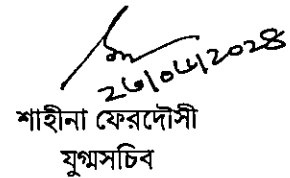 ২৬/০৬/২০২৪
শাহীনা ফেরদৌসী
যুগ্মসচিব